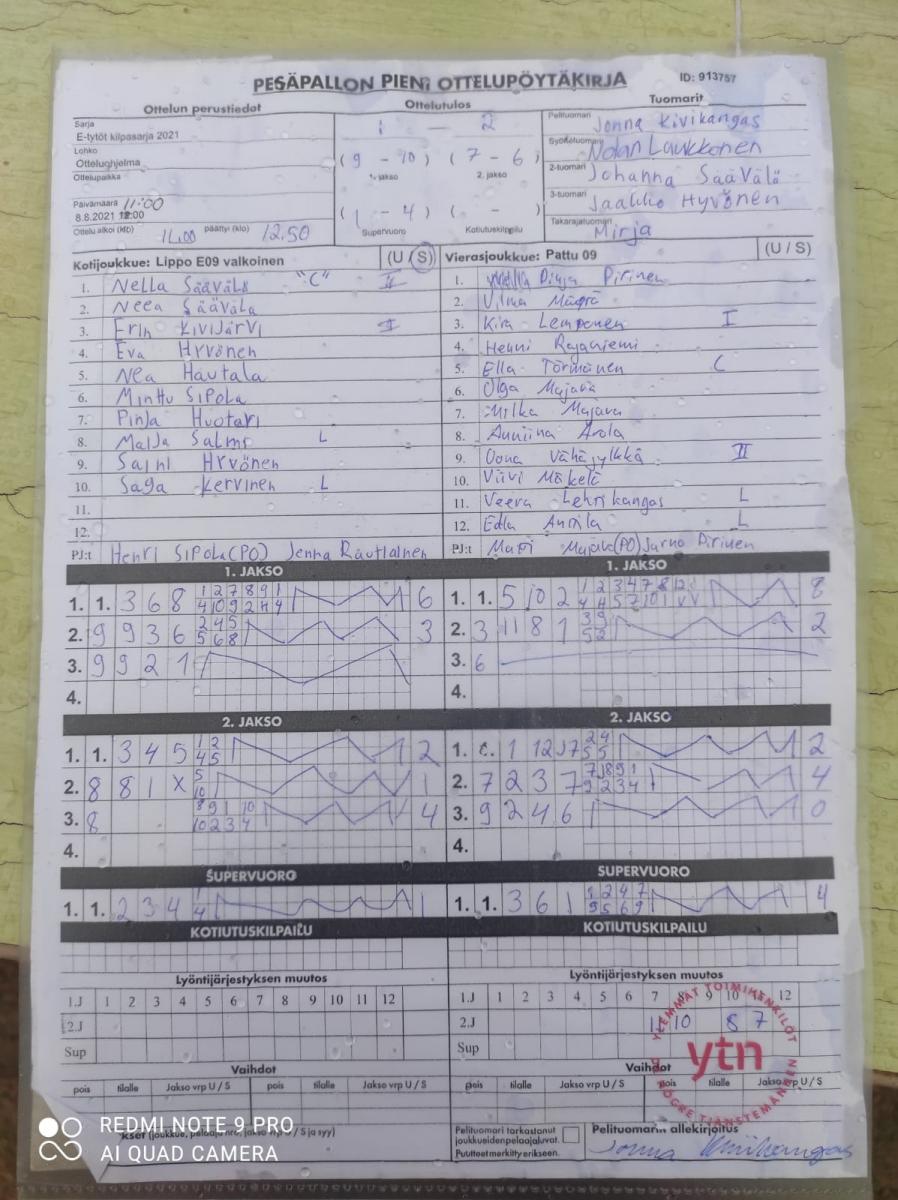 PESÄPALLON PIENI OTTELUPÖYTÄKIRJA ID: 913757
Ottelun perustiedot Ottelutulos Tuomarit
Sarja
E-tytöt kilpasarja 2021
Lohko
Otteluohjelma
Ottelupaikka
Päivämäärä 11:00
8.8.2021 12:00
Ottelu alkoi (klo) 11.00 päättyi (klo) 12.50
1 - 2
(9 - 10) (7 - 6)
1. jakso 2. jakso
(1 - 4) ( - )
Supervuoro Kotiutuskilpailu
Pelituomari Jonna Kivikangas
Syöttötuomari Nolan Laukkonen
2-tuomari Johanna Säävälä
3-tuomari Jaakko Hyvönen
Takarajatuomari Mirja
Kotijoukkue: Lippo E09 valkoinen (U / S)
1. Nella Säävälä "C" II
2. Neea Säävälä
3. Erin Kivijärvi I
4. Eva Hyvönen
5. Nea Hautala
6. Minttu Sipola
7. Pinja Huotari
8. Maija Salmi L
9. Saini Hyvönen
10. Saga Kervinen L
11.
12.
PJ:t Henri Sipola (PO) Jenna Rautiainen
Vierasjoukkue: Pattu 09 (U / S)
1. Pinja Pirinen
2. Vilma
3. Kira Lemponen I
4. Henni Rajaniemi
5. Ella Törmänen C
6. Olga Majava
7. Milka Majava
8. Anniina Arola
9. Oona Vähäjylkkä II
10. Viivi Mäkelä
11. Veera Lehtikangas L
12. Edla Anttila L
PJ:t Matti Majava (PO) Jarno Pirinen
1. JAKSO
1. 1. 3 6 8 1 2 7 8 9 1 6
4 10 9 2 4 4
2. 9 9 3 6 2 4 5 3
5 6 8
3. 9 9 2 1
4.
1. JAKSO
1. 1. 5 10 2 1 2 3 4 7 8 12 8
4 4 5 7 10 1 X V
2. 3 11 8 1 3 9 2
5 2
3. 6
4.
2. JAKSO
1. 1. 3 4 5 1 2 2
4 5
2. 8 8 1 X 5 1
10
3. 8 8 9 1 10 4
10 2 3 4
4.
2. JAKSO
1. 1 12 7 2 4 2
5 5
2. 7 2 3 7 7 8 9 1 4
9 2 3 4
3. 9 2 4 6 0
4.
SUPERVUORO
1. 1. 2 3 4 1 1
4
SUPERVUORO
1. 1. 3 6 1 1 2 4 7 4
3 5 6 9
KOTIUTUSKILPAILU
KOTIUTUSKILPAILU
Lyöntijärjestyksen muutos
1.J 1 2 3 4 5 6 7 8 9 10 11 12
2.J
Sup
Lyöntijärjestyksen muutos
1.J 1 2 3 4 5 6 7 8 9 10 12
2.J 11 10 8 7
Sup
Vaihdot
pois tilalle Jakso vrp U / S pois tilalle Jakso vrp U / S
Vaihdot
pois tilalle Jakso vrp U / S pois tilalle Jakso vrp U / S
YLEMMÄT TOIMIHENKILÖT
ytn
HÖGRE TJÄNSTEMÄNNEN
Pelituomari tarkastanut
joukkueiden pelaajaluvat.
Puutteet merkitty erikseen.
Pelituomarin allekirjoitus
Jonna Kivikangas
REDMI NOTE 9 PRO
AI QUAD CAMERA